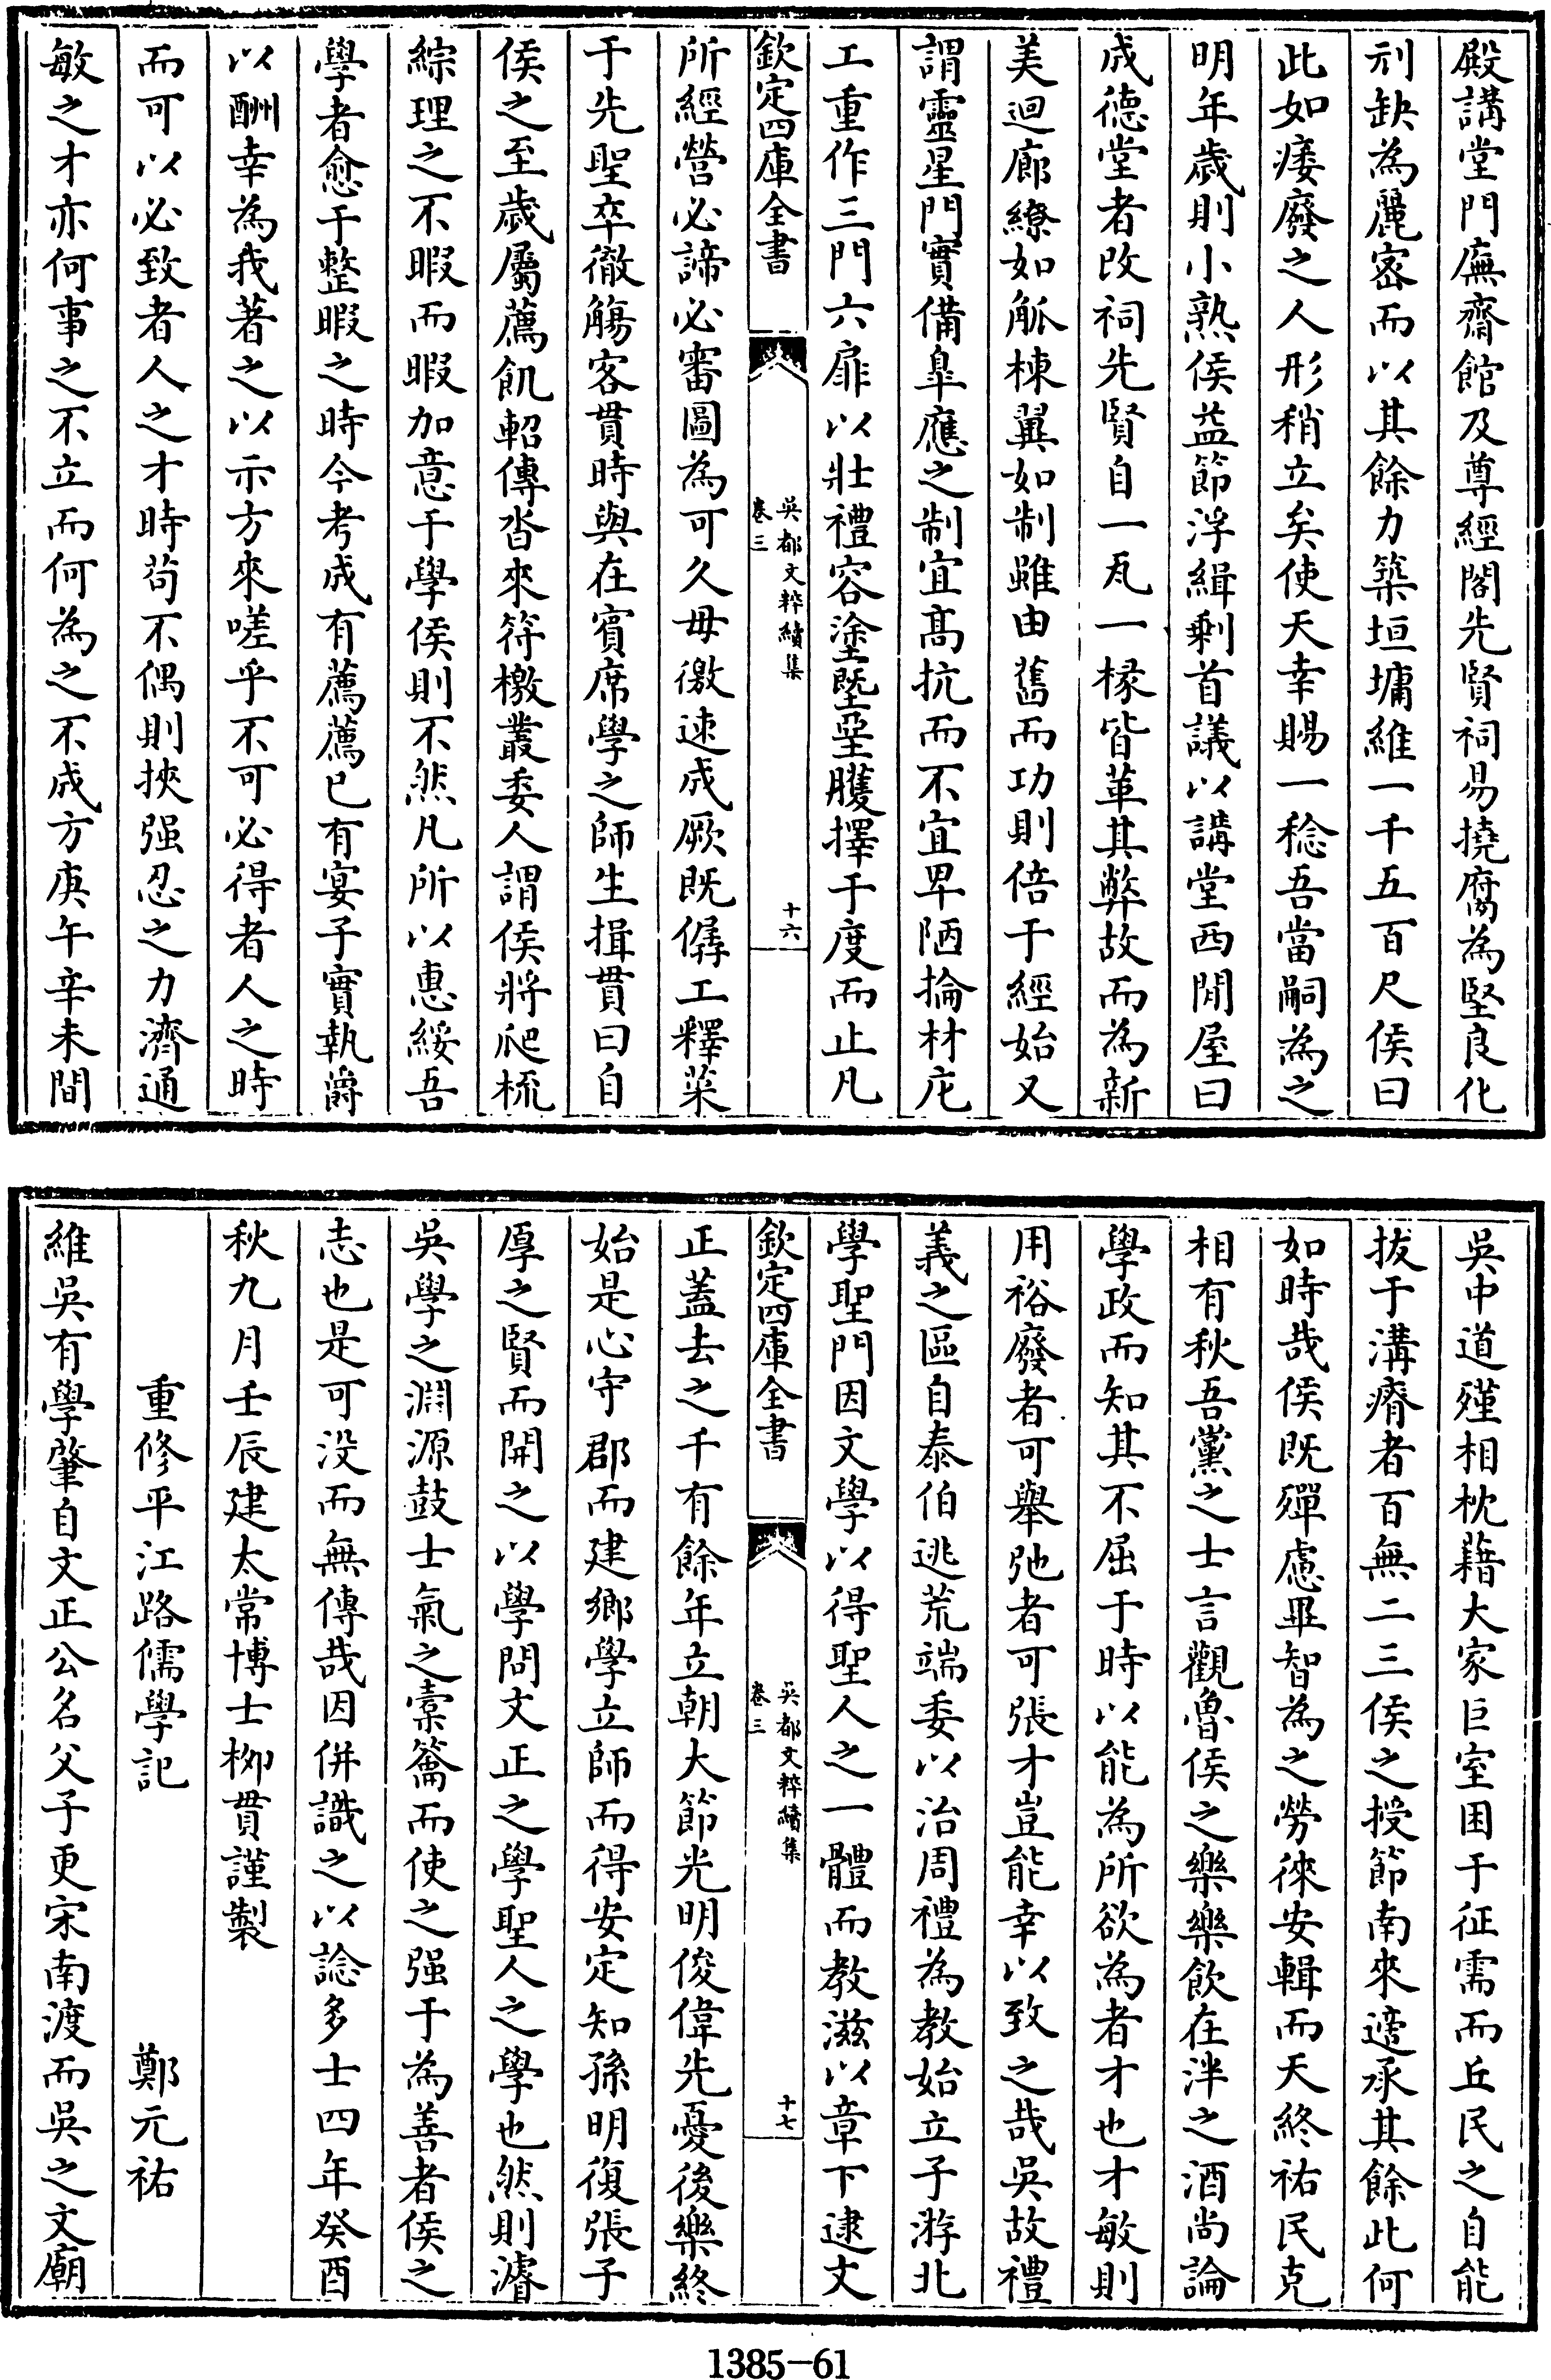 殿講堂門廡齋館及尊經閣先賢祠易撓腐為堅良化
刓缺為麗宻而以其餘力築垣墉維一千五百尺侯曰
此如痿廢之人形稍立矣使天幸賜一稔吾當嗣為之
明年歲則小熟侯益節浮緝剩首議以講堂西閒屋曰
成德堂者改祠先賢自一瓦一椽皆革其弊故而為新
美迴廊繚如觚棟翼如制雖由舊而功則倍于經始又
謂靈星門實備臯應之制宜髙抗而不宜卑陋掄材庀
工重作三門六扉以壯禮容塗墍堊雘擇于度而止凡
欽定四庫全書
吳都文粹續集
卷三
十六
所經營必諦必審圖為可久毋徼速成厥既僝工釋菜
于先聖卒徹觴客貫時與在賓席學之師生揖貫曰自
侯之至歲屬薦飢軺傳沓來符檄叢委人謂侯將爬梳
綜理之不暇而暇加意于學侯則不然凡所以惠綏吾
學者愈于整暇之時今考成有薦薦已有宴子實執爵
以酬幸為我著之以示方來嗟乎不可必得者人之時
而可以必致者人之才時苟不偶則挾强忍之力濟通
敏之才亦何事之不立而何為之不成方庚午辛未間
吳中道殣相枕藉大家巨室困于征需而丘民之自能
拔于溝瘠者百無二三侯之授節南來遹承其餘此何
如時哉侯既殫慮畢智為之勞徠安輯而天終祐民克
相有秋吾黨之士言觀魯侯之樂樂飲在泮之酒尚論
學政而知其不屈于時以能為所欲為者才也才敏則
用裕廢者可舉弛者可張才豈能幸以致之哉吳故禮
義之區自泰伯逃荒端委以治周禮為教始立子游北
學聖門因文學以得聖人之一體而教滋以章下逮文
欽定四庫全書
吳都文粹續集
卷三
十七
正蓋去之千有餘年立朝大節光明俊偉先憂後樂終
始是心守郡而建鄉學立師而得安定知孫明復張子
厚之賢而開之以學問文正之學聖人之學也然則濬
吳學之淵源鼓士氣之橐籥而使之强于為善者侯之
志也是可没而無傳哉因併識之以諗多士四年癸酉
秋九月壬辰建太常博士柳貫謹製
重修平江路儒學記 鄭元祐
維吳有學肇自文正公名父子更宋南渡而吳之文廟
1385-61